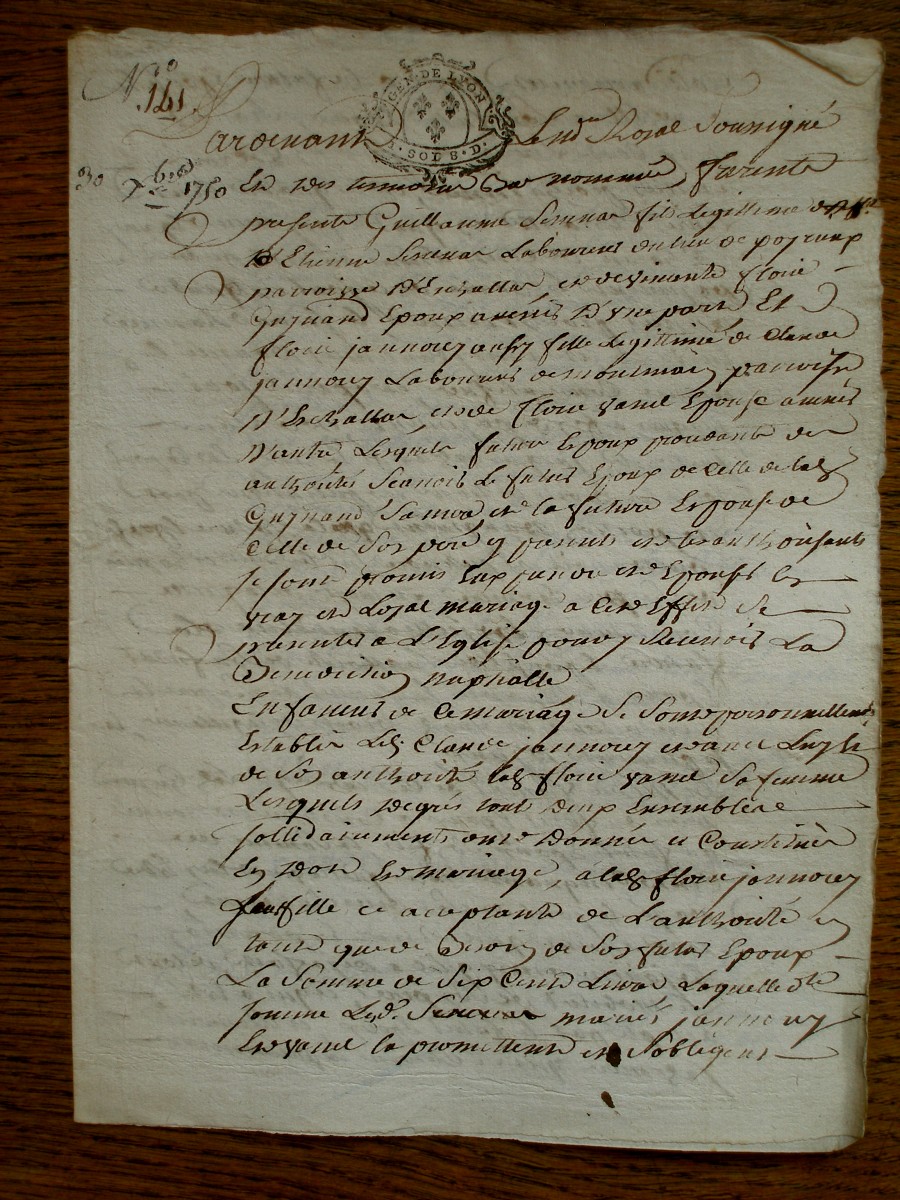 N.º 141.
GEN. DE LYON
SOD 8. D.
Pardevant Le nre Royal Soussigné
30 7bre 1750
Et des temoins Bas nommés, furent
presents Guillaume fils Legittime de
Etienne Laboureur du lieu de
parroisse D'Echallas et de vivante Floric
Guynand Epoux avenir D'une part Et
Floric jannouy aussy fille Legittime de Claude
jannouy Laboureur de parroisse
D'Echallas et de Floric vanel Epouse avenir
D'autre Lesquels futurs Epoux procedants de
authorités scavoir Le futur Epoux de Celle de lad
Guynand Sa mere et la future Epouse de
Celle de Son pere cy present et les authorisants
se sont promis Eux prendre et Epouser En
vray et Loyal mariage a Cet Effet Se
presenter a L'Eglise pour y Recevoir La
Benediction nuptialle
En faveur de Ce mariage Se Sont personnellement
Establis Led Claude jannouy et avec Luy &
de Son authorité lad Floric vanel Sa femme
Lesquels De gré tout deux Ensemble &
sollidairement ont Donné et Constitué
En Dot & mariage, à lad Floric jannouy
leur fille ce acceptante de L'authorité en
tant que de Besoin de Son futur Epoux
La Somme de Six Cents Livres Laquelle dte
somme Lesd. mariés jannouy
Et vanel la promettent et S'obligent